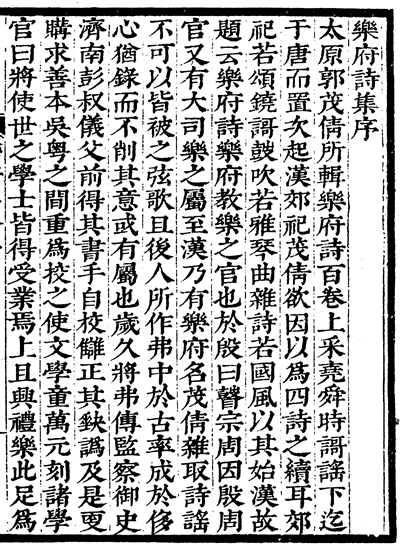 樂府詩集序
太原郭茂倩所輯樂府詩百卷上采堯舜時謌謠下迄
于唐而置次起漢郊祀茂倩欲因以為四詩之續耳郊
祀若頌鐃謌鼓吹若雅琴曲雜詩若國風以其始漢故
題云樂府詩樂府教樂之官也於殷曰瞽宗周因殷周
官又有大司樂之屬至漢乃有樂府名茂倩雜取詩謠
不可以皆被之弦歌且後人所作弗中於古率成於侈
心猶錄而不削其意或有屬也歲久將弗傳監察御史
濟南彭叔儀父前得其書手自校讎正其缺譌及是更
購求善本吳粤之間重為校之使文學童萬元刻諸學
官曰將使世之學士皆得受業焉上且興禮樂此足為